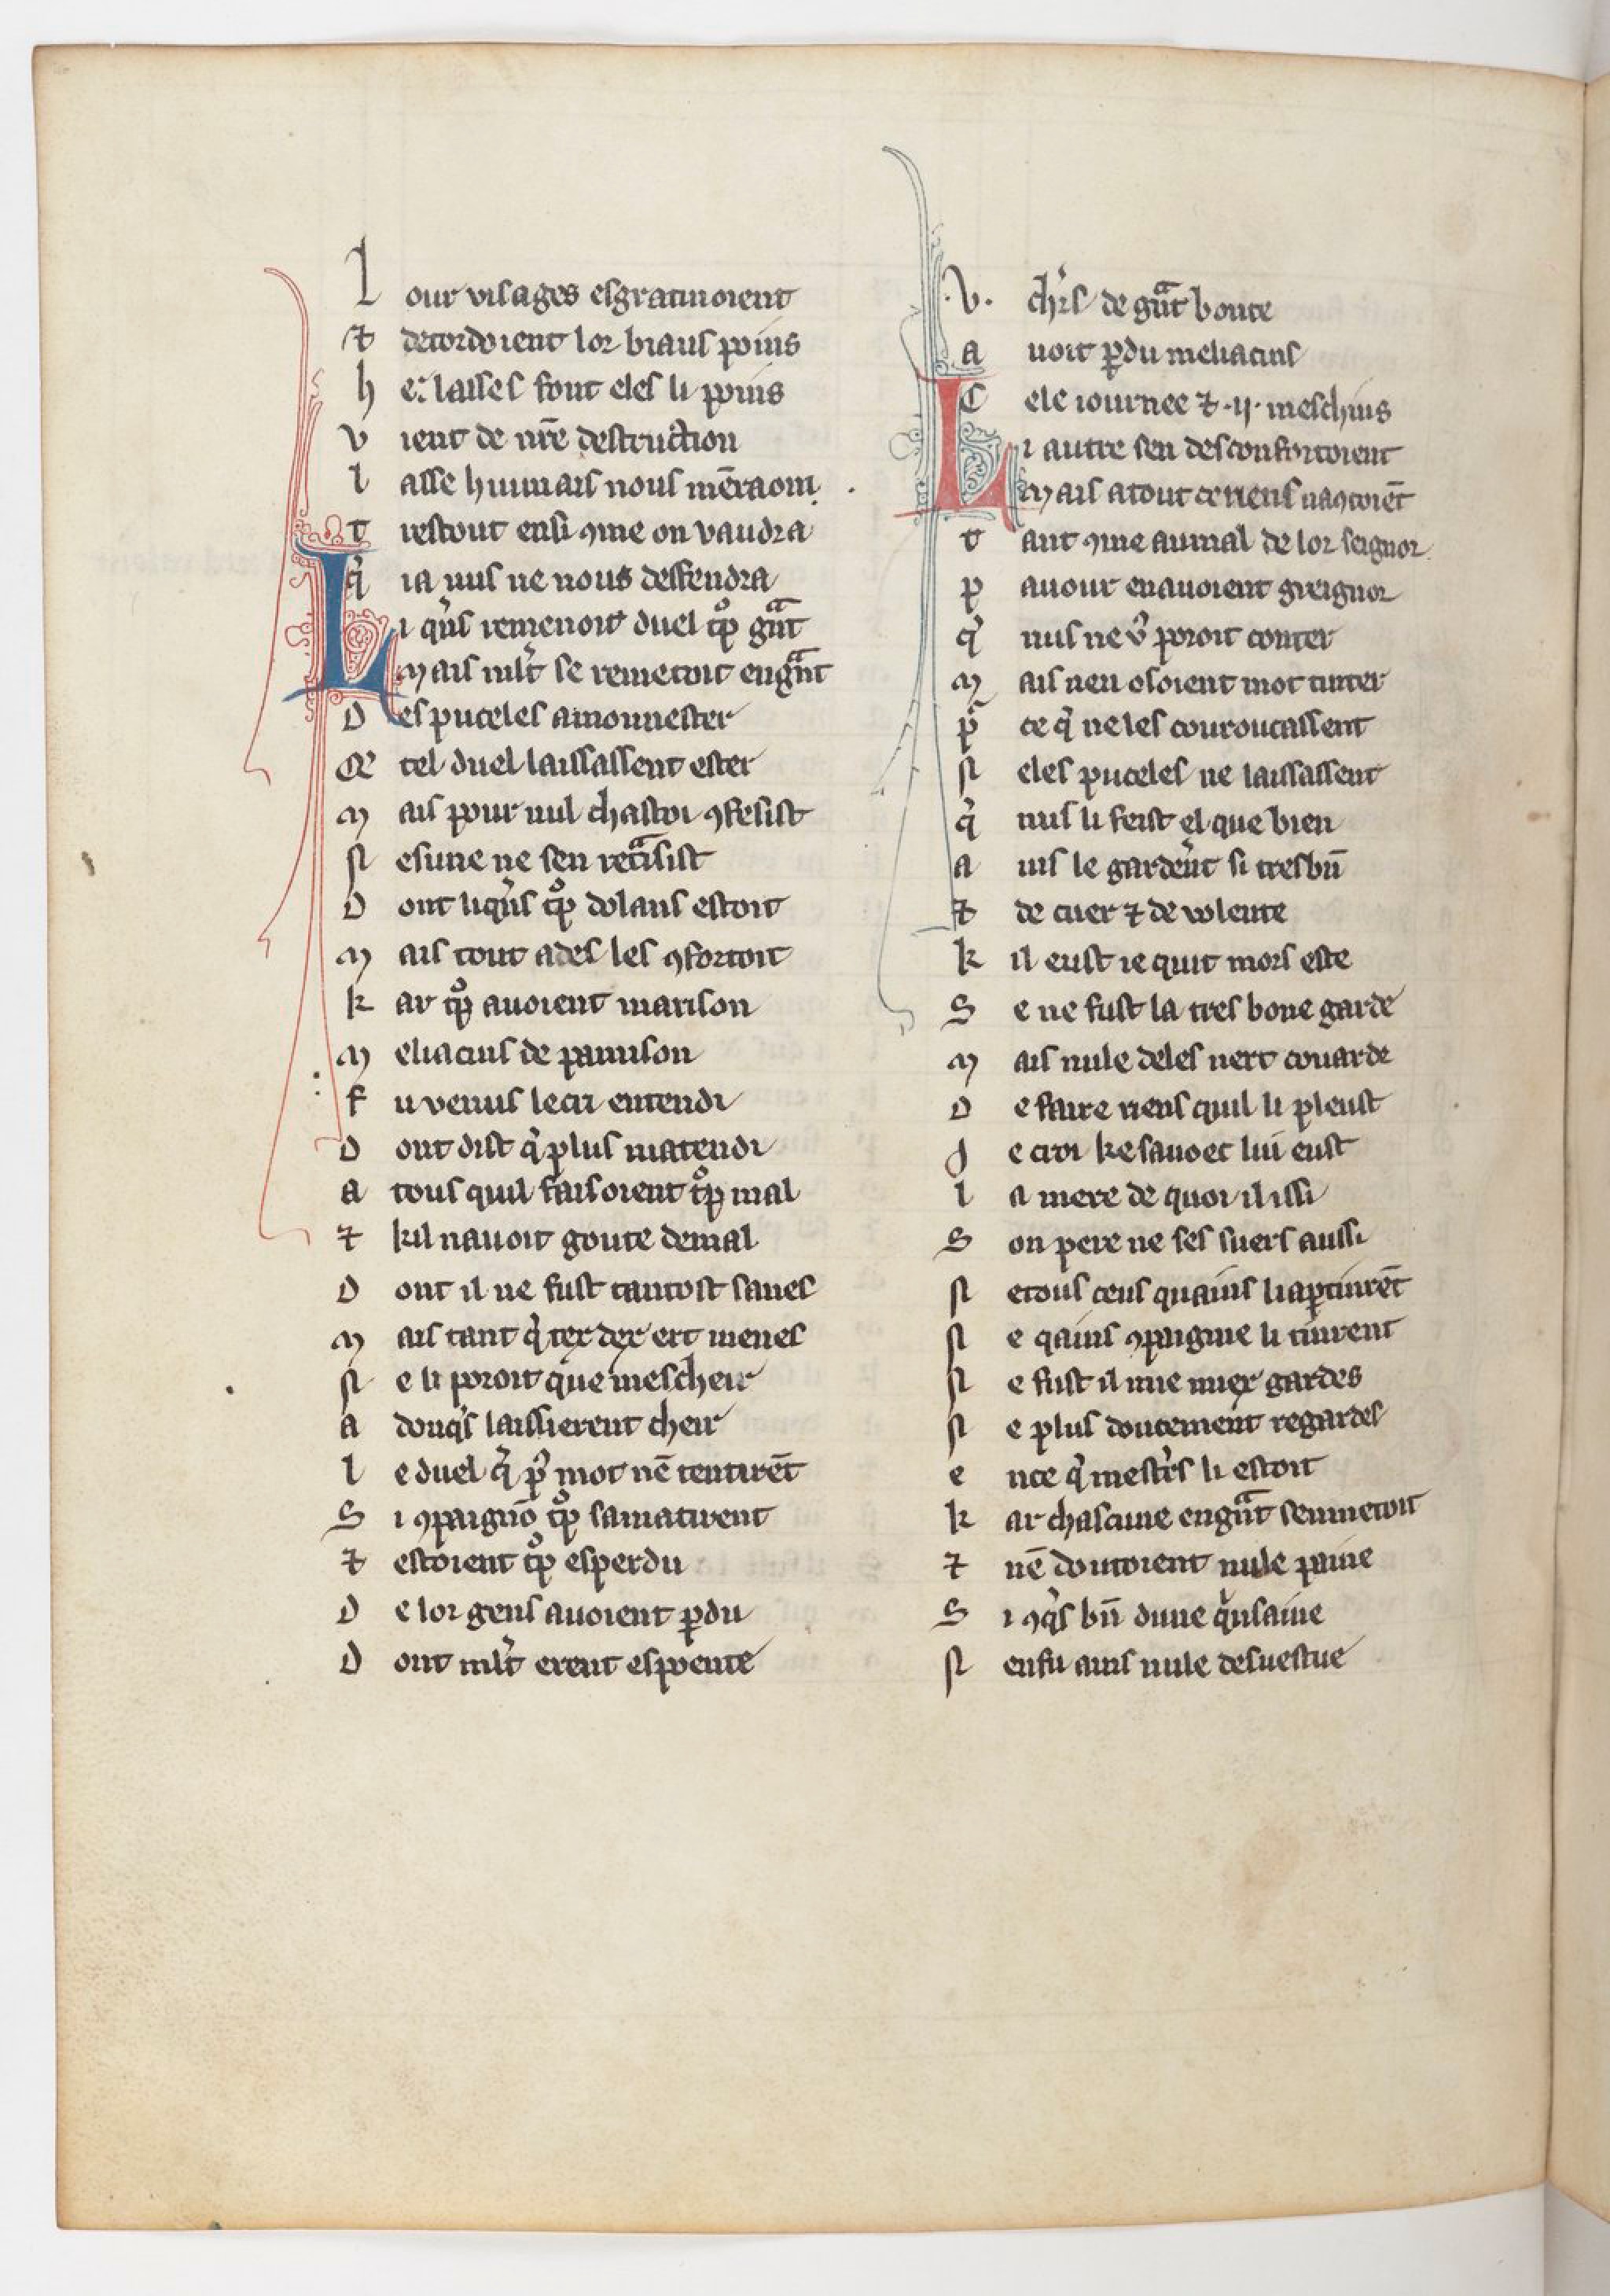 Lour visages esgratinoient
⁊ detordoient lor biaus poins
he: lasses font eles li poins
vient de nr̄e destruction
lasse huimais nous mēra on
trestout ensi ꝯme on vaudra
q̓ ia nus ne nous deffendra
Li q̓ns remenoit duel tͦp gͣnt
Mais ml̓t se remetoit en gͣnt
Des puceles amonnester
Qe tel duel laissassent ester
Mais pour nul chastoi ꝯ fesist
Nesune ne sen retͣisist
Dont li q̓ns tͦp dolans estoit
Mais tout ades les ꝯfortoit
kar tͦp auoient marison
Meliacins de pamison
fu venus le cri entendi
Dont dist q̓ plus natendi
a tous quil faisoient tͦp mal
⁊ kil nauoit goute de mal
Dont il ne fust tantost sanes
Mais tant q̓ ter der ert menes
Ne li poroit que mescheir
a donq̓s laissierent cheir
le duel q̓ p̓ mot nē tentirēt
Si ꝯpaignō tͦp samatirent
⁊ estoient tͦp esperdu
De lor gens auoient ꝑdu
Dont ml̓t erent espoente
.v. ch̓rs de gͣnt bonte
auoit ꝑdu meliacins
Cele iournee ⁊ .ij. meschins
Li autre sen desconfortoient
Mais a tout ce riens naꝯtoiēt
tant ꝯme au mal de lor seignor
paour en auoient greignor
q̓ nus ne v̓ poroit conter
Mais nen osoient mot tinter
p̓ ce q̓ ne les couroucassent
Ne les puceles ne laissassent
q̓ nus li feist el que bien
ains le garder̓nt si tres bn̄
⁊ de cuer ⁊ de volente
kil eust ie quit mors este
Se ne fust la tres bone garde
Mais nule deles nert couarde
De faire riens quil li pleust
Je croi ke sauoec lui eust
la mere de quoi il issi
Son pere ne ses suers aussi
Ne tous ceus quains li aꝑtinrēt
Ne qains ꝯpaignie li tinrent
Ne fust il mie miex gardes
Ne plus doucement regardes
en ce q̓ mestr̓s li estoit
kar chascune en gͣnt sen metoit
⁊ nē doutoient nule paine
Si ꝯq̓s bn̄ dune q̓nsaine
Nen fu ains nule desuestue